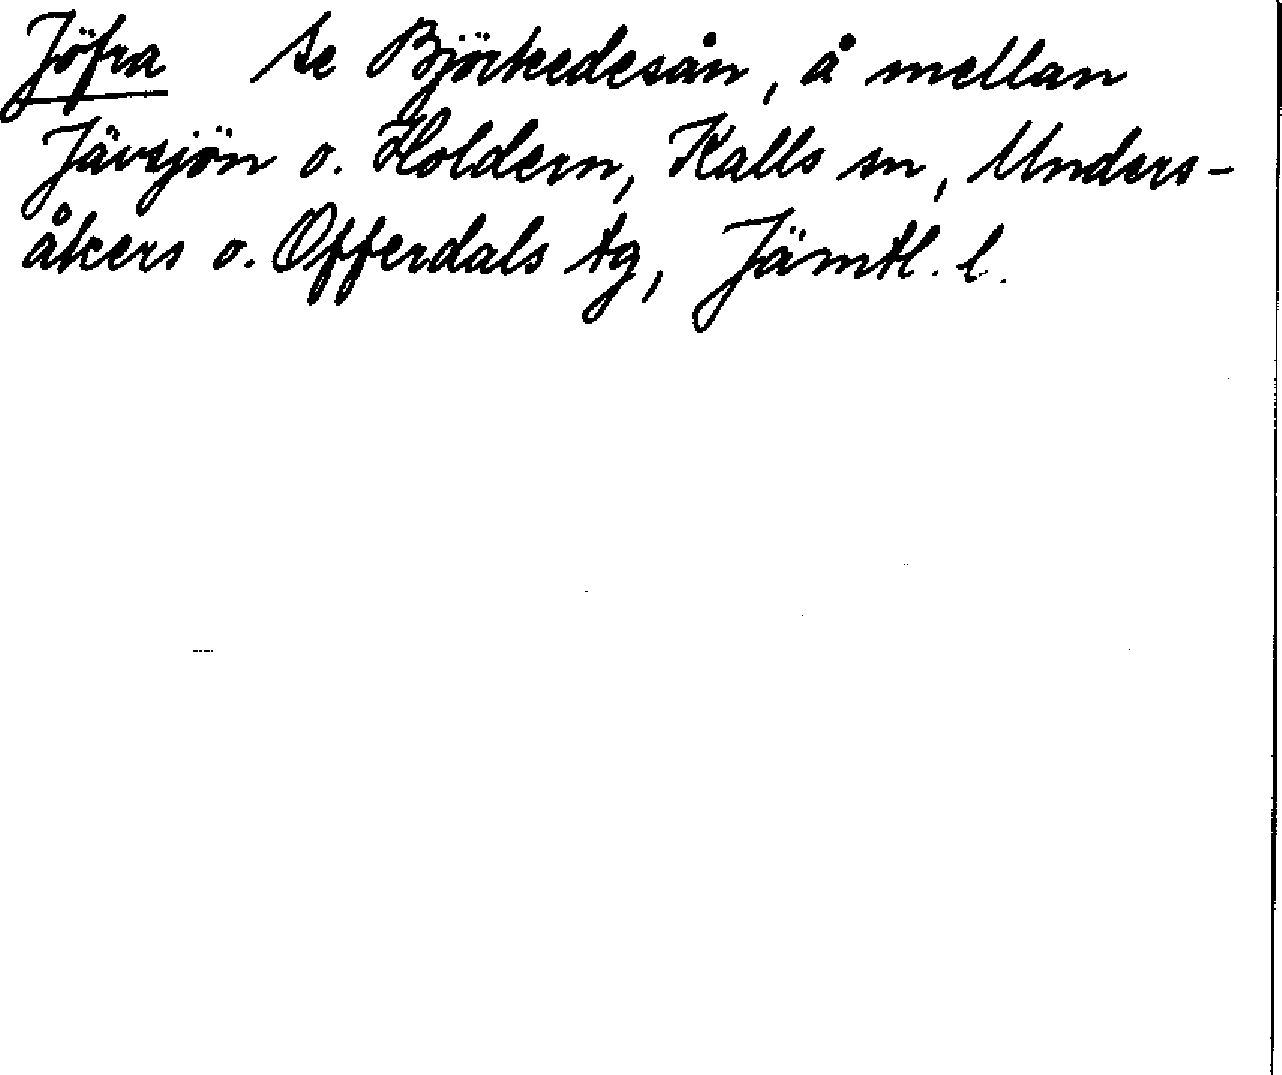 Jöfra se Björkedesån, å mellan
Jävsjön o. Holdern, Kalls sn, Unders-
åkers o. Offerdals tg, Jämtl. l.